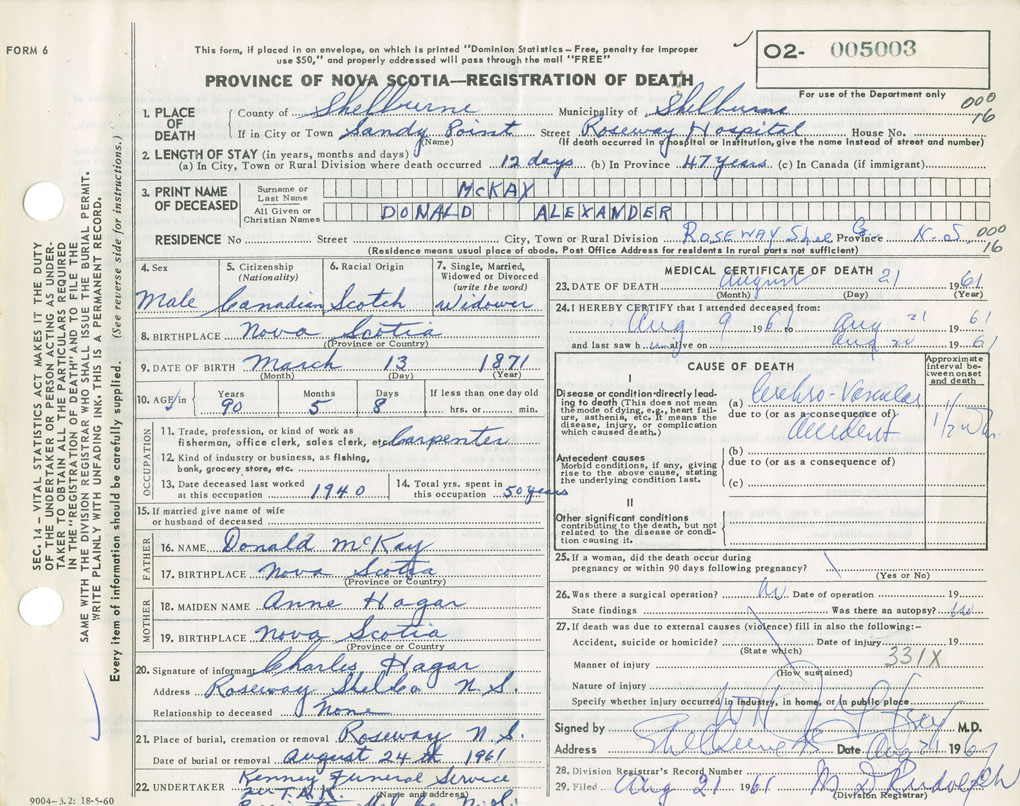 FORM 6
This form, if placed in an envelope, on which is printed "Dominion Statistics – Free, penalty for improper
use $50," and properly addressed will pass through the mail "FREE"
O2- 005003
For use of the Department only
PROVINCE OF NOVA SCOTIA—REGISTRATION OF DEATH
000
16
1. PLACE OF DEATH
County of Shelburne Municipality of Shelburne
If in City or Town Sandy Point Street Roseway Hospital House No.
(Name) (If death occurred in a hospital or institution, give the name instead of street and number)
2. LENGTH OF STAY (in years, months and days)
(a) In City, Town or Rural Division where death occurred 12 days (b) In Province 47 years (c) In Canada (if immigrant)
3. PRINT NAME OF DECEASED
Surname or Last Name McKAY
All Given or Christian Names DONALD ALEXANDER
RESIDENCE No Street City, Town or Rural Division ROSEWAY Shel Co Province N.S.
000
16
(Residence means usual place of abode. Post Office Address for residents in rural parts not sufficient)
4. Sex Male
5. Citizenship (Nationality) Canadian
6. Racial Origin Scotch
7. Single, Married, Widowed or Divorced (write the word) Widower
8. BIRTHPLACE Nova Scotia
(Province or Country)
9. DATE OF BIRTH March 13 1871
(Month) (Day) (Year)
10. AGE Years 90 Months 5 Days 8 If less than one day old hrs. or min.
OCCUPATION
11. Trade, profession, or kind of work as
fisherman, office clerk, sales clerk, etc. Carpenter
12. Kind of industry or business, as fishing,
bank, grocery store, etc.
13. Date deceased last worked
at this occupation 1940
14. Total yrs. spent in
this occupation 50 years
15. If married give name of wife
or husband of deceased
FATHER
16. NAME Donald McKay
17. BIRTHPLACE Nova Scotia
(Province or Country)
MOTHER
18. MAIDEN NAME Anne Hagar
19. BIRTHPLACE Nova Scotia
(Province or Country
20. Signature of informant Charles Hagar
Address Roseway Shel Co N.S.
Relationship to deceased None
21. Place of burial, cremation or removal Roseway N.S.
Date of burial or removal August 24th 1961
22. UNDERTAKER Kenney Funeral Service
per T.A.K.
(Name and address)
9004-3.2: 18-5-60
MEDICAL CERTIFICATE OF DEATH
23. DATE OF DEATH August 21 1961
(Month) (Day) (Year)
24. I HEREBY CERTIFY that I attended deceased from:
Aug 9 1961 to Aug 21 1961
and last saw h im alive on Aug 20 1961
CAUSE OF DEATH
Approximate interval between onset and death
I
Disease or condition directly leading to death (This does not mean the mode of dying, e.g., heart failure, asthenia, etc. It means the disease, injury, or complication which caused death.)
(a) Cerebro-Vascular
due to (or as a consequence of)
Accident
Antecedent causes
Morbid conditions, if any, giving rise to the above cause, stating the underlying condition last.
(b)
due to (or as a consequence of)
(c)
II
Other significant conditions
contributing to the death, but not related to the disease or condition causing it.
25. If a woman, did the death occur during
pregnancy or within 90 days following pregnancy?
(Yes or No)
26. Was there a surgical operation? No Date of operation 19
State findings Was there an autopsy? No
27. If death was due to external causes (violence) fill in also the following:–
Accident, suicide or homicide? Date of injury 19
(State which)
331X
Manner of injury
(How sustained)
Nature of injury
Specify whether injury occurred in industry, in home, or in public place
Signed by M.D.
Address Shelburne Date Aug 21 1961
28. Division Registrar's Record Number
29. Filed Aug 21 1961 M D Rudolph
(Division Registrar)
SEC. 14 – VITAL STATISTICS ACT MAKES IT THE DUTY
OF THE UNDERTAKER OR PERSON ACTING AS UNDER-
TAKER TO OBTAIN ALL THE PARTICULARS REQUIRED
IN THE "REGISTRATION OF DEATH" AND TO FILE THE
SAME WITH THE DIVISION REGISTRAR WHO SHALL ISSUE THE BURIAL PERMIT.
WRITE PLAINLY WITH UNFADING INK. THIS IS A PERMANENT RECORD.
Every item of information should be carefully supplied. (See reverse side for instructions.)